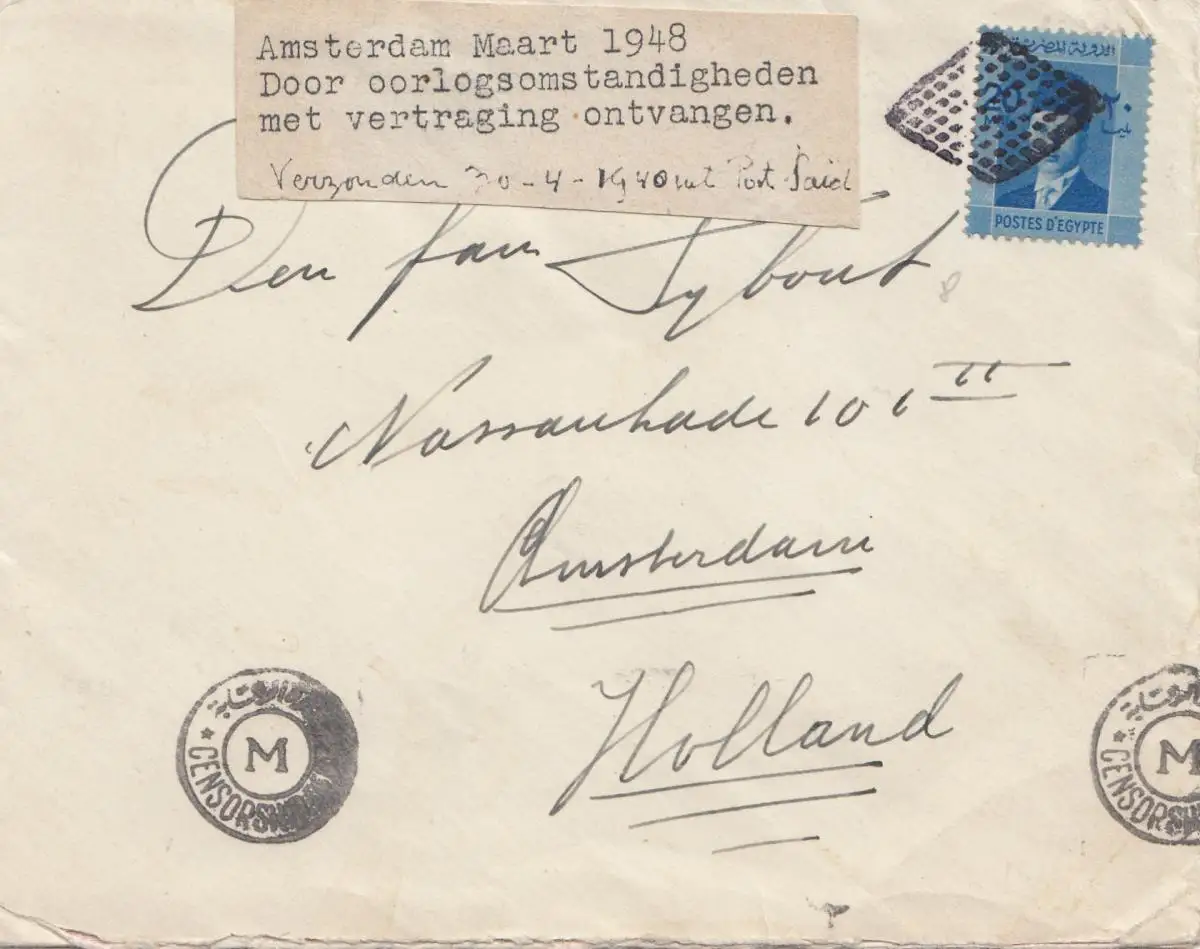 Amsterdam Maart 1948
Door oorlogsomstandigheden
met vertraging ontvangen.
Verzonden 30-4-1940 uit Port Saïd
الدولة المصرية
20
٢٠
POSTES D'EGYPTE
Den fam Sybout
8
Nassaukade 101 II
Amsterdam
Holland
M
CENSORSHIP
M
CENSORSH